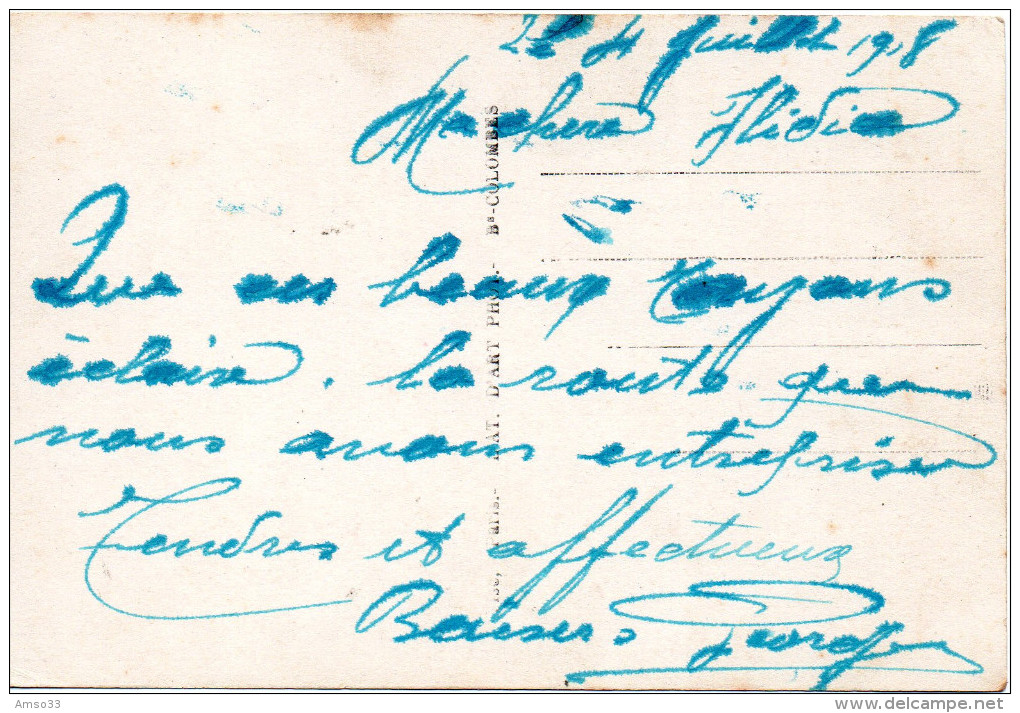 Juillet 1918
Ma chère Ilidia
Que ces beaux rayons
éclaire. la route que
nous avons entreprise
Tendres et affectueux
Baisers Georges
AT. D'ART PHOT.- Bs-COLOMBES
Amso33
delcampe.net